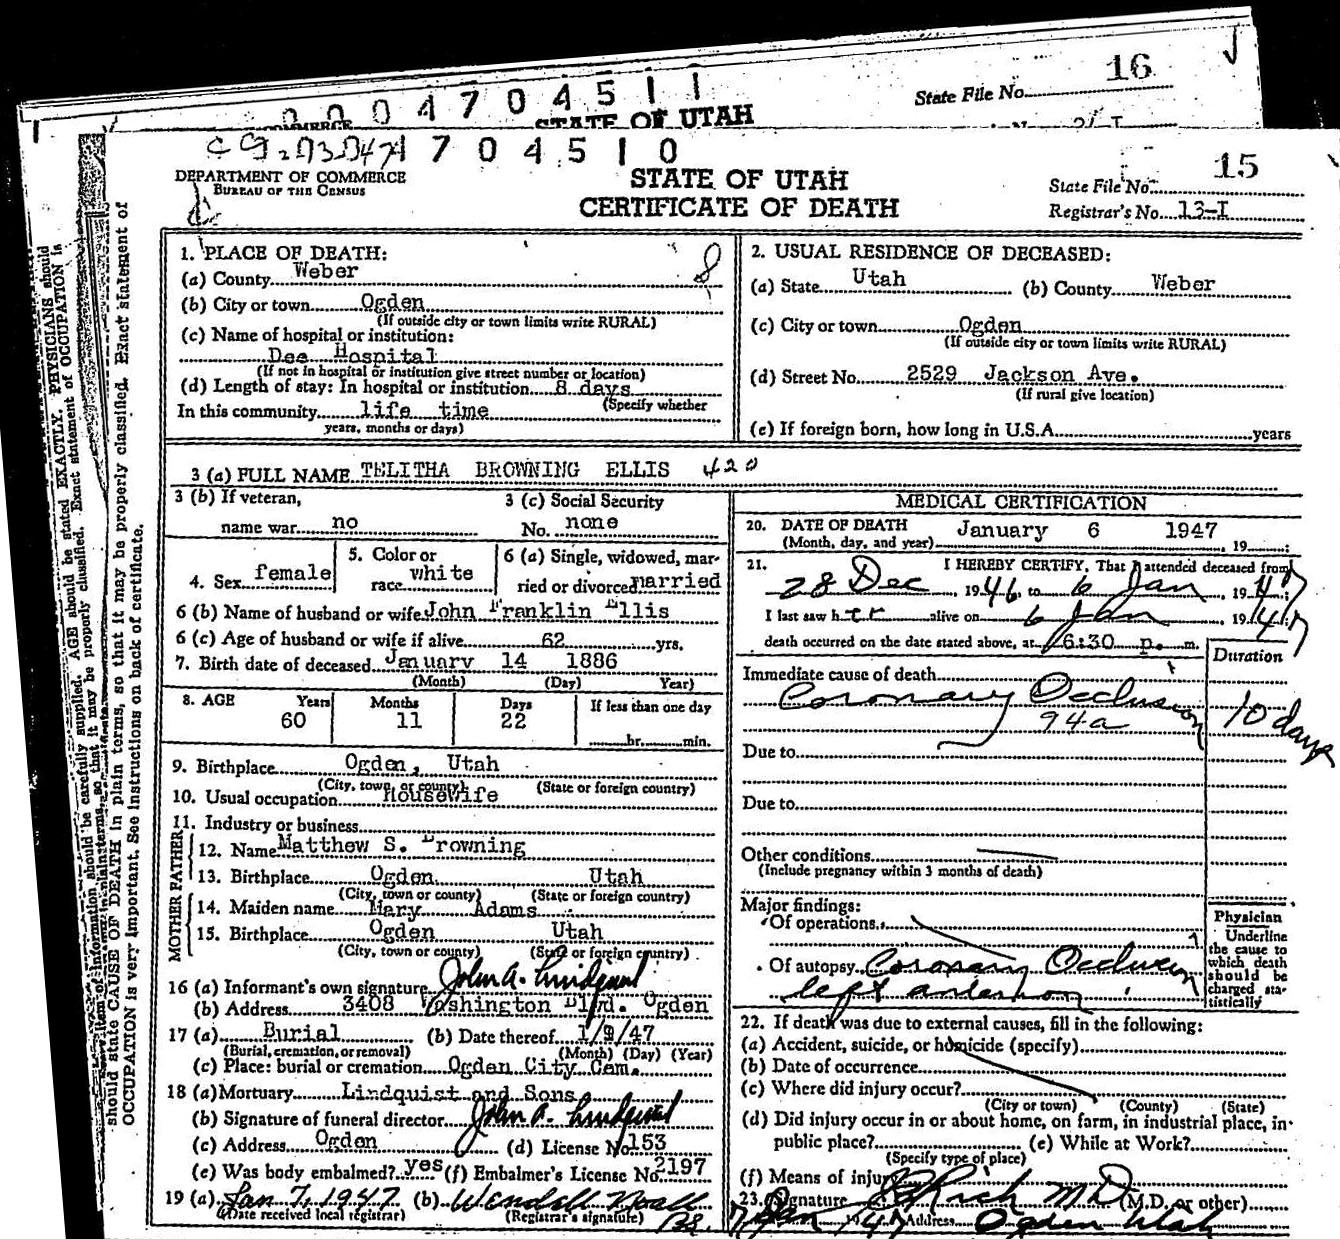 16
State File No.
0 0 0 4 7 0 4 5 1 1
STATE OF UTAH
7 0 4 5 1 0
15
DEPARTMENT OF COMMERCE
BUREAU OF THE CENSUS
STATE OF UTAH
CERTIFICATE OF DEATH
State File No.
Registrar's No. 13-I
1. PLACE OF DEATH:
(a) County Weber
(b) City or town Ogden
(If outside city or town limits write RURAL)
(c) Name of hospital or institution:
Dee Hospital
(If not in hospital or institution give street number or location)
(d) Length of stay: In hospital or institution 8 days
(Specify whether
In this community life time
years, months or days)
2. USUAL RESIDENCE OF DECEASED:
(a) State Utah (b) County Weber
(c) City or town Ogden
(If outside city or town limits write RURAL)
(d) Street No. 2529 Jackson Ave.
(If rural give location)
(e) If foreign born, how long in U.S.A. years
3 (a) FULL NAME TELITHA BROWNING ELLIS 420
3 (b) If veteran, 3 (c) Social Security
name war no No. none
4. Sex female
5. Color or race white
6 (a) Single, widowed, married or divorced married
6 (b) Name of husband or wife John Franklin Ellis
6 (c) Age of husband or wife if alive 62 yrs.
7. Birth date of deceased January 14 1886
(Month) (Day) Year)
8. AGE Years Months Days If less than one day
60 11 22 hr. min.
9. Birthplace Ogden, Utah
(City, town or county) (State or foreign country)
10. Usual occupation Housewife
11. Industry or business
FATHER
12. Name Matthew S. Browning
13. Birthplace Ogden Utah
(City, town or county) (State or foreign country)
MOTHER
14. Maiden name Mary Adams
15. Birthplace Ogden Utah
(City, town or county) (State or foreign country)
16 (a) Informant's own signature John A. Lindquist
(b) Address 3408 Washington Blvd. Ogden
17 (a) Burial (b) Date thereof 1/9/47
(Burial, cremation, or removal) (Month) (Day) (Year)
(c) Place: burial or cremation Ogden City Cem.
18 (a) Mortuary Lindquist and Sons
(b) Signature of funeral director John A. Lindquist
(c) Address Ogden (d) License No. 153
(e) Was body embalmed? yes (f) Embalmer's License No. 2197
19 (a) Jan 7, 1947 (b) Wendell Noall
(Date received local registrar) (Registrar's signature)
MEDICAL CERTIFICATION
20. DATE OF DEATH January 6 1947
(Month, day, and year) , 19 ;
21. I HEREBY CERTIFY, That I attended deceased from
28 Dec , 1946, to 6 Jan , 1947
I last saw her alive on 6 Jan , 1947
death occurred on the date stated above, at 6:30 p. m.
Duration
Immediate cause of death
Coronary Occlusion
94a
10 days
Due to
Due to
Other conditions
(Include pregnancy within 3 months of death)
Major findings:
Of operations
Of autopsy Coronary Occlusion
left
Physician
Underline
the cause to
which death
should be
charged sta-
tistically
22. If death was due to external causes, fill in the following:
(a) Accident, suicide, or homicide (specify)
(b) Date of occurrence
(c) Where did injury occur?
(City or town) (County) (State)
(d) Did injury occur in or about home, on farm, in industrial place, in
public place? (e) While at Work?
(Specify type of place)
(f) Means of injury
23. Signature Rich M D (M.D. or other)
7 Jan 47 Address Ogden Utah
should state CAUSE OF DEATH in plain terms, so that it may be properly classified. Exact statement of
OCCUPATION is very important. See instructions on back of certificate.